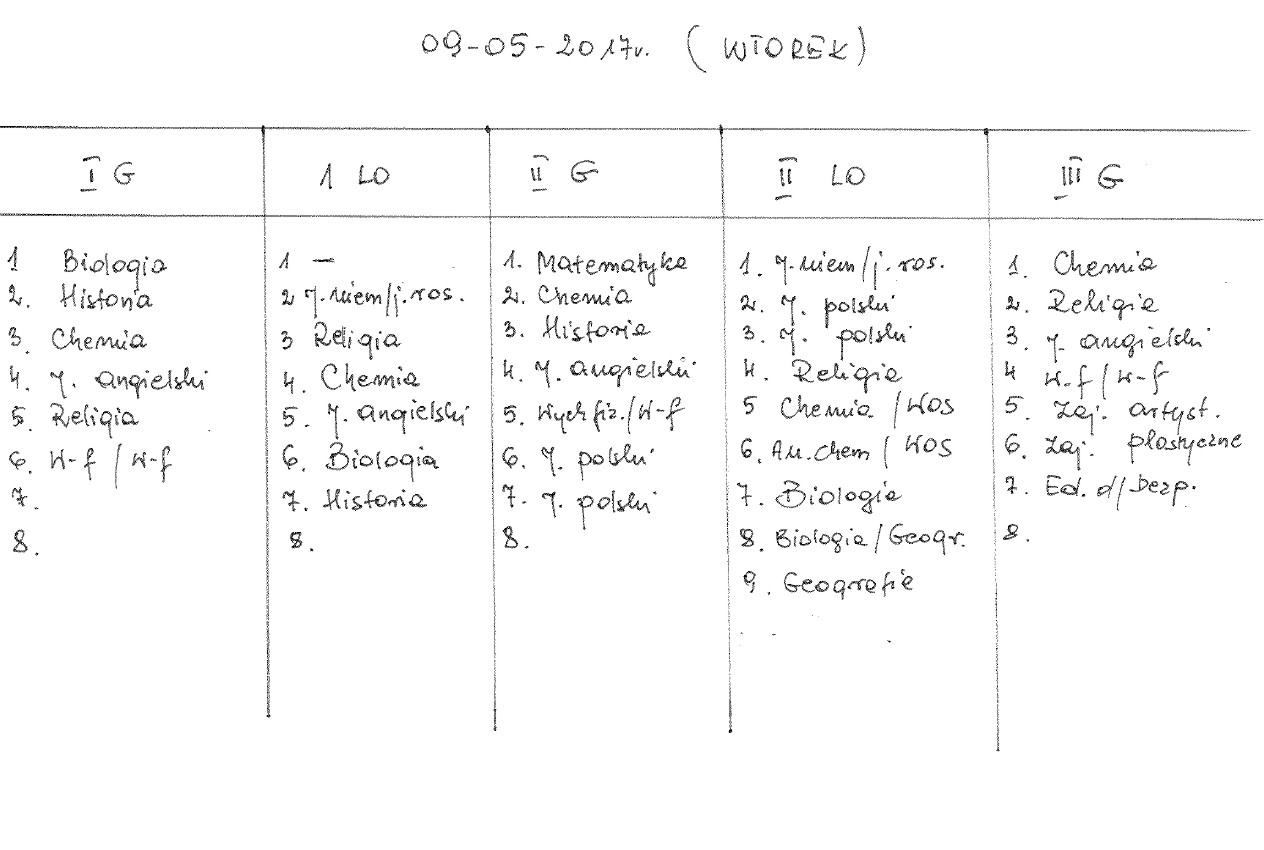 09-05-2017r. (WTOREK)
I G
1 Biologia
2. Historia
3. Chemia
4. J. angielski
5. Religia
6. W-f / W-f
7.
8.
1 LO
1 —
2 J. niem/j. ros.
3 Religia
4. Chemia
5. J. angielski
6. Biologia
7. Historia
8.
II G
1. Matematyka
2. Chemia
3. Historia
4. J. angielski
5. Wych fiz./W-f
6. J. polski
7. J. polski
8.
II LO
1. J. niem/j. ros.
2. J. polski
3. J. polski
4. Religia
5 Chemia / WOS
6. An. chem / WOS
7. Biologia
8. Biologia/Geogr.
9. Geografia
III G
1. Chemia
2. Religia
3. J. angielski
4 W-f / W-f
5. Zaj. artyst.
6. Zaj. plastyczne
7. Ed. d/bezp.
8.